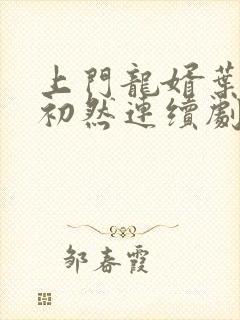 上門龍婿葉
初然連續劇
邹春霞